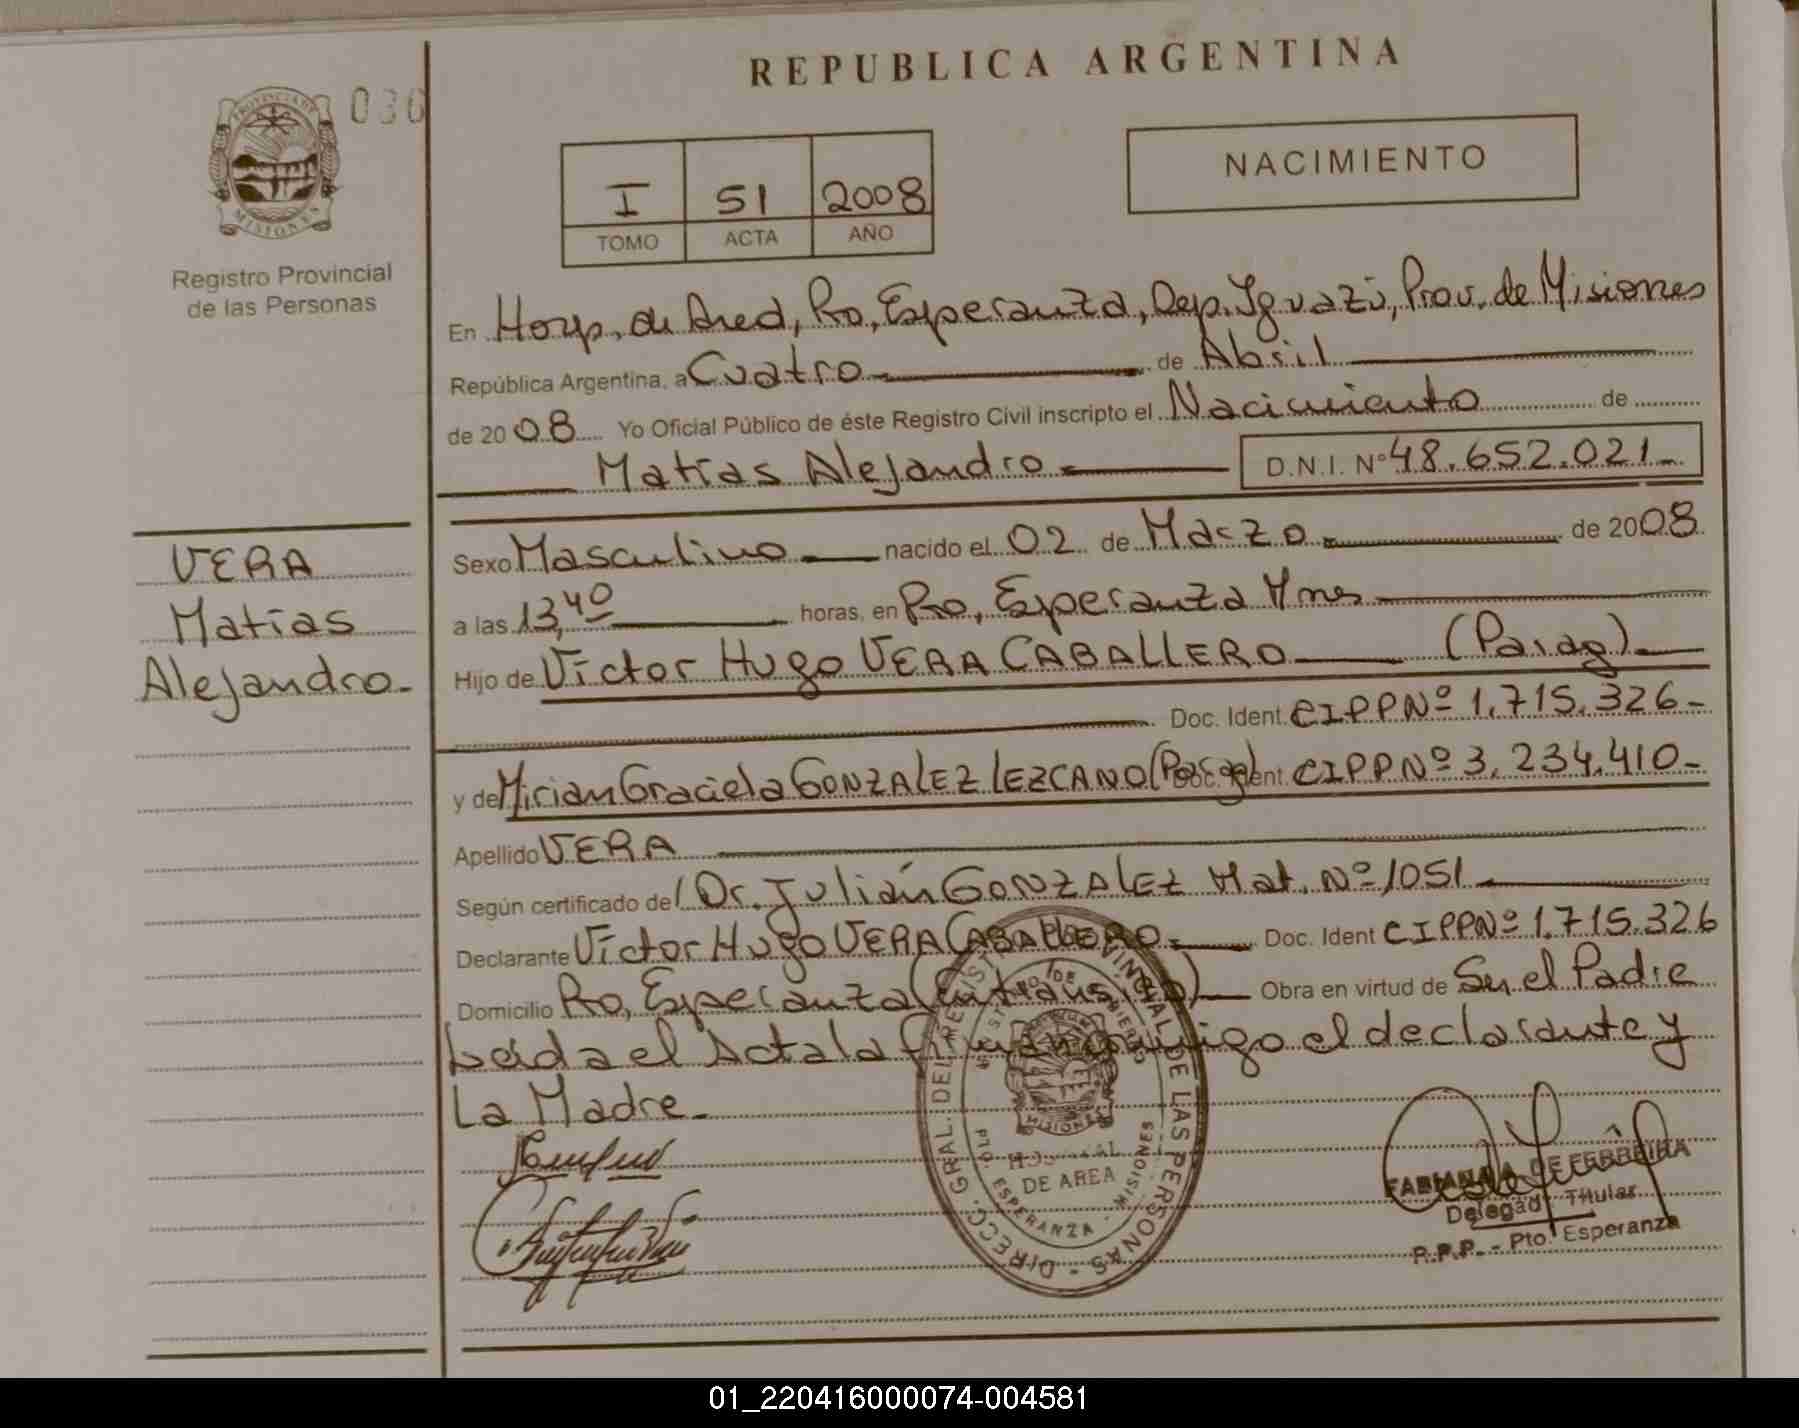 REPUBLICA ARGENTINA
PROVINCIA DE MISIONES
030
Registro Provincial
de las Personas
I 51 2008
TOMO ACTA AÑO
NACIMIENTO
En Hosp. de Area, Pto. Esperanza, Dep. Iguazú, Prov. de Misiones
República Argentina, a Cuatro de Abril
de 2008 Yo Oficial Público de éste Registro Civil inscripto el Nacimiento de
Matías Alejandro D.N.I. Nº 48.652.021
VERA
Matías
Alejandro
Sexo Masculino nacido el 02 de Marzo de 2008
a las 13,40 horas, en Pto. Esperanza Mnes
Hijo de Víctor Hugo VERA CABALLERO (Parag)
Doc. Ident. CIPPNº 1.715.326
y de Mirian Graciela GONZALEZ LEZCANO (Parag) Doc. Ident. CIPPNº 3.234.410
Apellido VERA
Según certificado del Dr. Julián GONZALEZ Mat. Nº 1051
Declarante Víctor Hugo VERA CABALLERO Doc. Ident CIPPNº 1.715.326
Domicilio Pto. Esperanza (En transito) Obra en virtud de Ser el Padre
Leida el Acta la firman conmigo el declarante y
La Madre
DIRECC. GRAL. DEL REGISTRO PROVINCIAL DE LAS PERSONAS
MINISTERIO DE GOBIERNO
MISIONES
HOSPITAL
DE AREA
PTO. ESPERANZA - MISIONES
FABIANA A. DE FERREIRA
Delegada Titular
R.P.P. - Pto. Esperanza
01_220416000074-004581